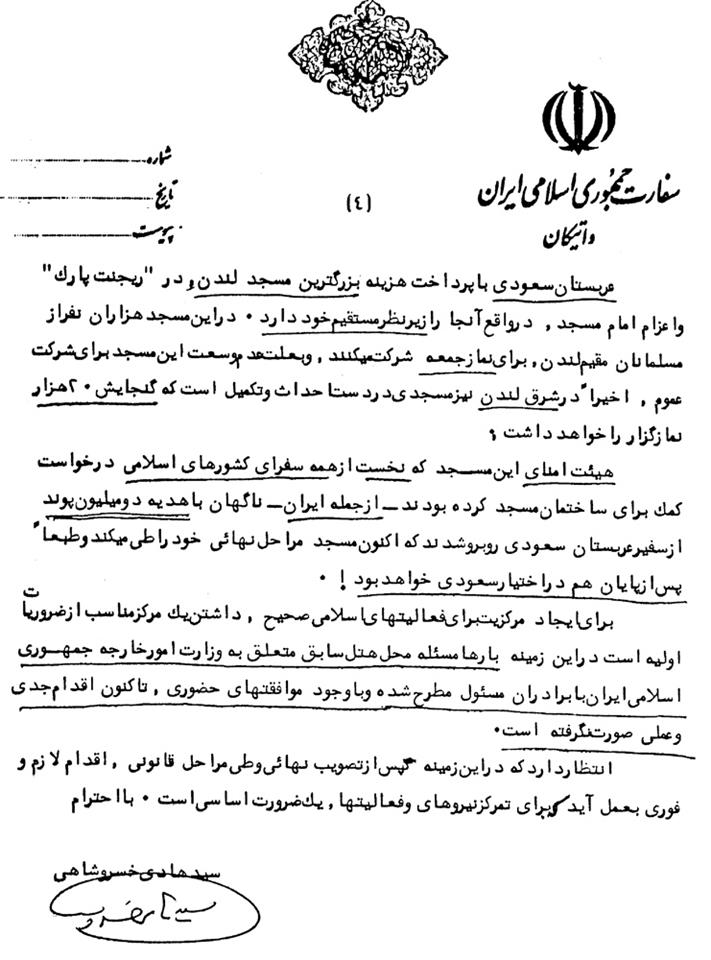 شماره
تاریخ
پیوست
سفارت جمهوری اسلامی ایران
واتیکان
(٤)
عربستان سعودی با پرداخت هزینه بزرگترین مسجد لندن, در "ریجنت پارك"
واعزام امام مسجد, درواقع آنجا رازیرنظرمستقیم خود دارد ۰ دراین مسجد هزاران نفراز
مسلمانان مقیم لندن, برای نمازجمعه شرکت میکنند, وبعلت عدم وسعت این مسجد برای شرکت
عموم, اخیرا" درشرق لندن نیزمسجدی دردست احداث وتکمیل است که گنجایش ۲۰هزار
نمازگزار را خواهد داشت ۰
هیئت امنای این مسجد که نخست ازهمه سفرای کشورهای اسلامی درخواست
کمك برای ساختمان مسجد کرده بودند ــ ازجمله ایران ــ ناگهان باهدیه دومیلیون پوند
ازسفیرعربستان سعودی روبروشدند که اکنون مسجد مراحل نهائی خود راطی میکند وطبعا"
پس ازپایان هم دراختیارسعودی خواهدبود ! ۰
برای ایجاد مرکزیت برای فعالیتهای اسلامی صحیح, داشتن یك مرکزمناسب ازضروریات
اولیه است دراین زمینه بارهامسئله محل هتل سابق متعلق به وزارت امورخارجه جمهوری
اسلامی ایران بابرادران مسئول مطرح شده وباوجود موافقتهای حضوری, تاکنون اقدام جدی
وعملی صورت نگرفته است۰
انتظاردارد که دراین زمینه پس ازتصویب نهائی وطی مراحل قانونی, اقدام لازم و
فوری بعمل آید که برای تمرکزنیروهای وفعالیتها, یك ضرورت اساسی است ۰ بااحترام
سید هادی خسروشاهی